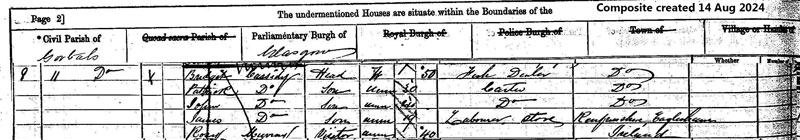 Page 2] The undermentioned Houses are situate within the Boundaries of the Composite created 14 Aug 2024
Civil Parish of Quoad sacra Parish of Parliamentary Burgh of Royal Burgh of Police Burgh of Town of Village or Hamlet
Gorbals Glasgow
Whether
9 " Do Bridget Cassidy Head W 50 Fish Dealer Do
Patrick Do Son unm 30 Carter Do
John Do Son unm Do Do
James Do Son unm 19 Labourer Store Renfrewshire Eaglesham
Rose Murray Visitor unm 40 Ireland